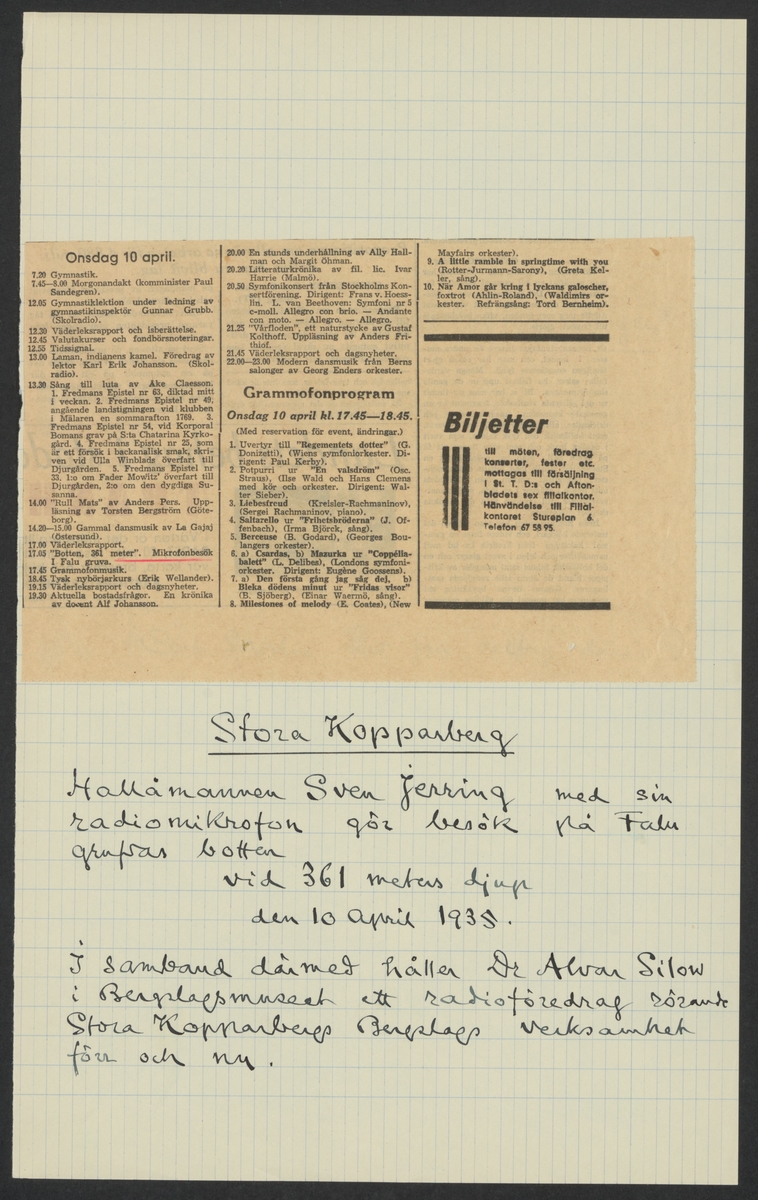 Onsdag 10 april.
7.20 Gymnastik.
7.45—8.00 Morgonandakt (komminister Paul
Sandegren).
12.05 Gymnastiklektion under ledning av
gymnastikinspektör Gunnar Grubb.
(Skolradio).
12.30 Väderleksrapport och isberättelse.
12.45 Valutakurser och fondbörsnoteringar.
12.55 Tidssignal.
13.00 Laman, indianens kamel. Föredrag av
lektor Karl Erik Johansson. (Skol-
radio).
13.30 Sång till luta av Åke Claesson.
1. Fredmans Epistel nr 63, diktad mitt
i veckan. 2. Fredmans Epistel nr 49,
angående landstigningen vid klubben
i Mälaren en sommarafton 1769. 3.
Fredmans Epistel nr 54, vid Korporal
Bomans grav på S:ta Chatarina Kyrko-
gård. 4. Fredmans Epistel nr 25, som
är ett försök i backanalisk smak, skri-
ven vid Ulla Winblads överfart till
Djurgården. 5. Fredmans Epistel nr
33. 1:o om Fader Mowitz' överfart till
Djurgården, 2:o om den dygdiga Su-
sanna.
14.00 "Rull Mats" av Anders Pers. Upp-
läsning av Torsten Bergström (Göte-
borg).
14.20—15.00 Gammal dansmusik av La Gajaj
(Östersund).
17.00 Väderleksrapport.
17.05 "Botten, 361 meter". Mikrofonbesök
i Falu gruva.
17.45 Grammofonmusik.
18.45 Tysk nybörjarkurs (Erik Wellander).
19.15 Väderleksrapport och dagsnyheter.
19.30 Aktuella bostadsfrågor. En krönika
av docent Alf Johansson.
20.00 En stunds underhållning av Ally Hall-
man och Margit Öhman.
20.20 Litteraturkrönika av fil. lic. Ivar
Harrie (Malmö).
20.50 Symfonikonsert från Stockholms Kon-
sertförening. Dirigent: Frans v. Hoess-
lin. L. van Beethoven: Symfoni nr 5
c-moll. Allegro con brio. — Andante
con moto. — Allegro. — Allegro.
21.25 "Vårfloden", ett naturstycke av Gustaf
Kolthoff. Uppläsning av Anders Fri-
thiof.
21.45 Väderleksrapport och dagsnyheter.
22.00—23.00 Modern dansmusik från Berns
salonger av Georg Enders orkester.
Grammofonprogram
Onsdag 10 april kl. 17.45—18.45.
(Med reservation för event. ändringar.)
1. Uvertyr till "Regementets dotter" (G.
Donizetti), (Wiens symfoniorkester. Di-
rigent: Paul Kerby).
2. Potpurri ur "En valsdröm" (Osc.
Straus), (Ilse Wald och Hans Clemens
med kör och orkester. Dirigent: Wal-
ter Sieber).
3. Liebesfreud (Kreisler-Rachmaninov),
(Sergei Rachmaninov, piano).
4. Saltarello ur "Frihetsbröderna" (J. Of-
fenbach), (Irma Björck, sång).
5. Berceuse (B. Godard), (Georges Bou-
langers orkester).
6. a) Csardas, b) Mazurka ur "Coppélia-
balett" (L. Delibes), (Londons symfoni-
orkester. Dirigent: Eugène Goossens).
7. a) Den första gång jag såg dej, b)
Bleka dödens minut ur "Fridas visor"
(B. Sjöberg), (Einar Waermö, sång).
8. Milestones of melody (E. Coates), (New
Mayfairs orkester).
9. A little ramble in springtime with you
(Rotter-Jurmann-Sarony), (Greta Kel-
ler, sång).
10. När Amor går kring i lyckans galoscher,
foxtrot (Ahlin-Roland), (Waldimirs or-
kester. Refrängsång: Tord Bernheim).
Biljetter
till möten, föredrag,
konserter, fester etc.
mottagas till försäljning
i St. T. D:s och Afton-
bladets sex filialkontor.
Hänvändelse till Filial-
kontoret Stureplan 6.
Telefon 67 58 95.
Stora Kopparberg
Hallåmannen Sven Jerring med sin
radiomikrofon gör besök på Falu
grufvas botten
vid 361 meters djup
den 10 april 1935.
I samband därmed håller Dr Alvar Silow
i Bergslagsmuseet ett radioföredrag rörande
Stora Kopparbergs Bergslags verksamhet
förr och nu.